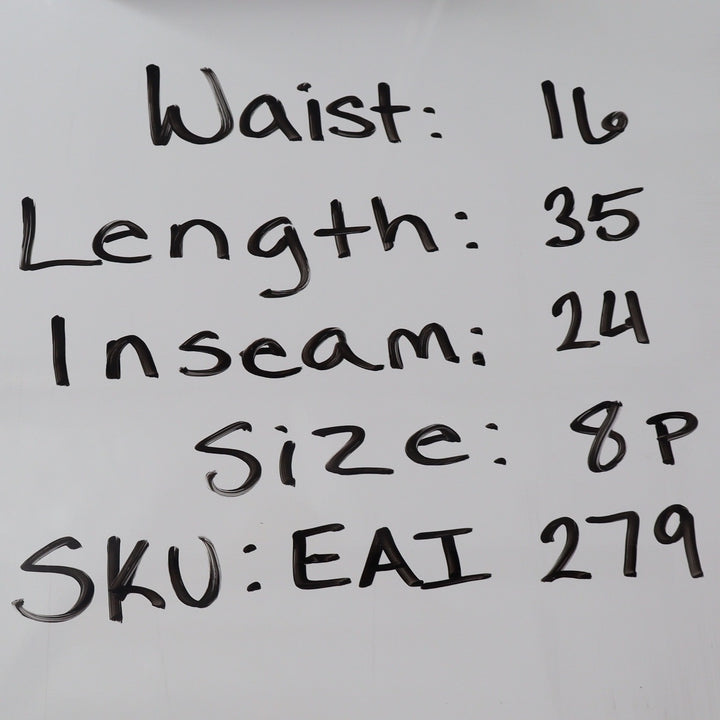 Waist: 16
Length: 35
Inseam: 24
Size: 8P
SKU: EAI 279